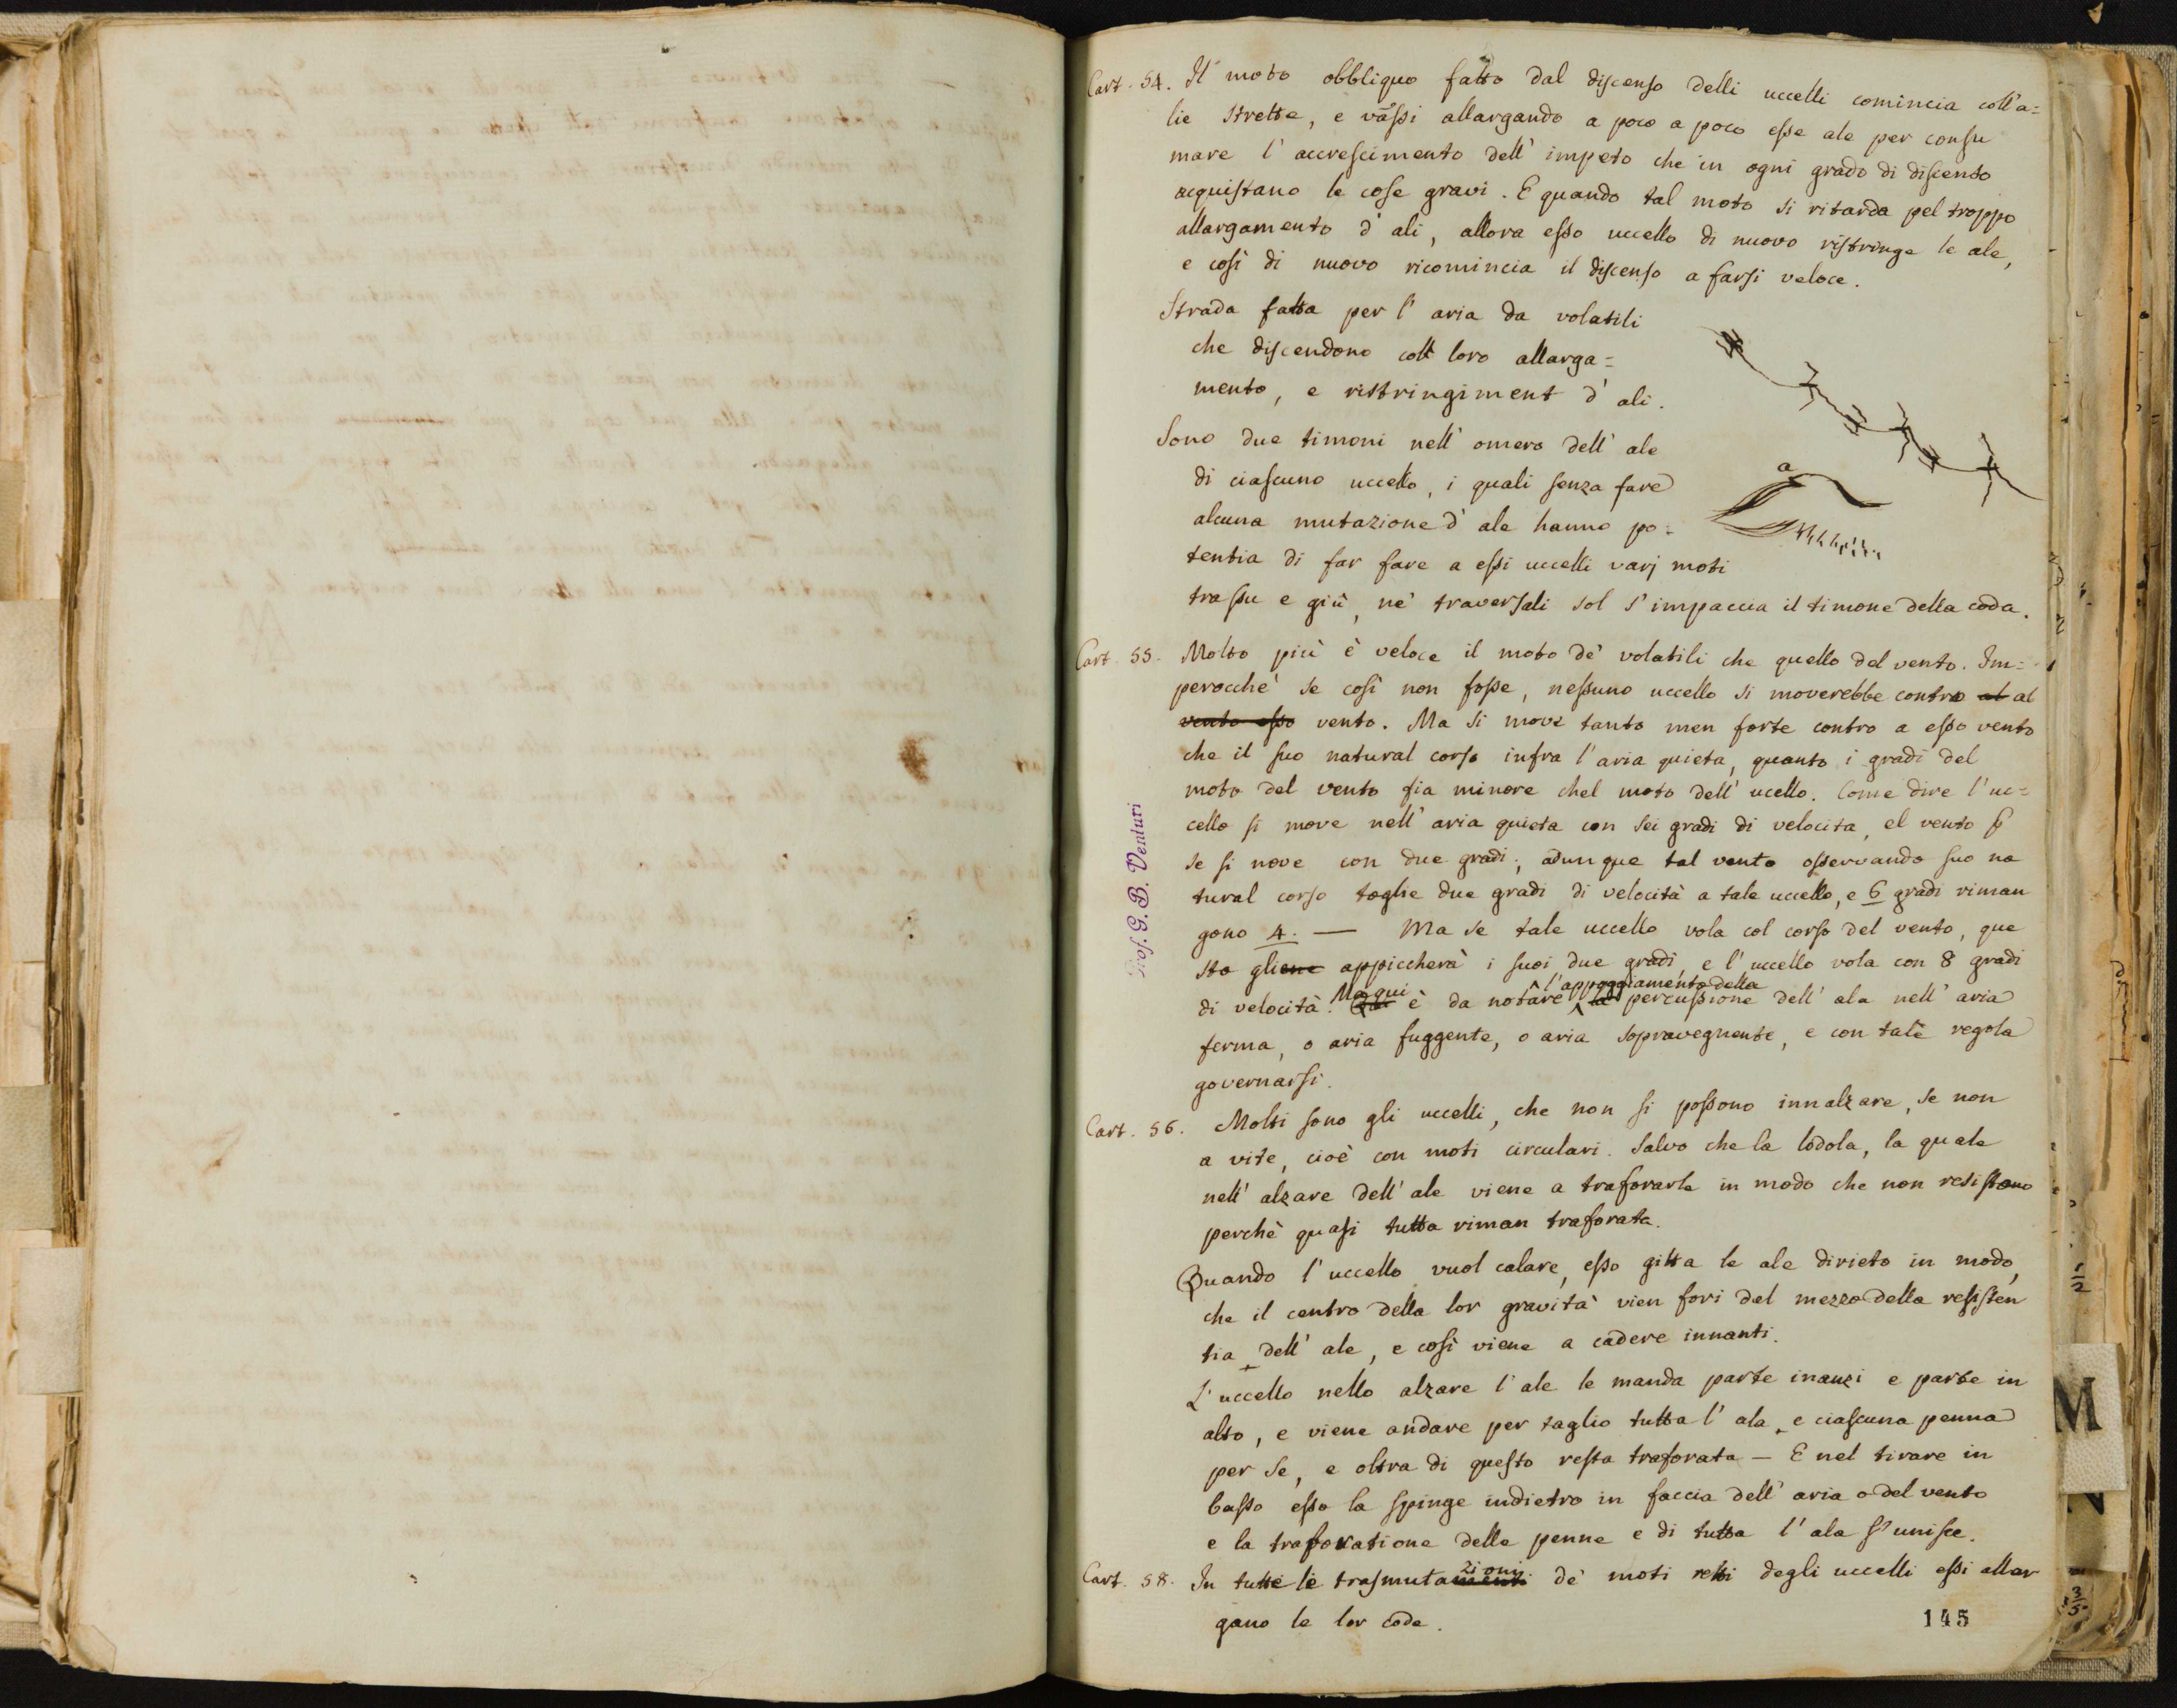 Cart. 54. Il moto obbliquo fatto dal discenso delli uccelli comincia coll'a=
lie strette, e vassi allargando a poco a poco esse ale per consu
mare l'accrescimento dell'impeto che in ogni grado di discenso
acquistano le cose gravi. E quando tal moto si ritarda pel troppo
allargamento d'ali, allora esso uccello di nuovo ristringe le ale,
e così di nuovo ricomincia il discenso a farsi veloce.
Strada fatta per l'aria da volatili
che discendono coll loro allarga=
mento, e ristringiment d'ali.
Sono due timoni nell'omero dell'ale
a
di ciascuno uccello, i quali senza fare
alcuna mutazione d'ale hanno po=
tentia di far fare a essi uccelli varj moti
trasu e giù, ne' traversali sol s'impaccia il timone della coda.
Cart. 55. Molto più è veloce il moto de' volatili che quello del vento. Im=
perocche' se così non fosse, nessuno uccello si moverebbe contro al al
vento esso vento. Ma si move tanto men forte contro a esso vento
che il suo natural corso infra l'aria quieta, quanto i gradi del
moto del vento sia minore chel moto dell'ucello. Come dire l'uc=
cello si move nell'aria quieta con sei gradi di velocita, el vento
se si nove con due gradi; adunque tal vento osservando suo na
tural corso toglie due gradi di velocità a tale uccello, e 6 gradi riman
gono 4. — Ma se tale uccello vola col corso del vento, que
sto gliene appiccherà i suoi due gradi, e l'uccello vola con 8 gradi
Ma qui l'appoggiamento della
di velocità. Qui è da notare la percussione dell'ala nell'aria
ferma, o aria fuggente, o aria sopravegnente, e con tale regola
governarsi.
Cart. 56. Molti sono gli uccelli, che non si possono innalzare, se non
a vite, cioè con moti circulari. Salvo che la lodola, la quale
nell'alzare dell'ale viene a traforarle in modo che non resistono
perchè quasi tutta riman traforata.
Quando l'uccello vuol calare, esso gitta le ale dirieto in modo,
che il centro della lor gravità vien fori del mezzo della resisten
tia dell'ale, e così viene a cadere innanti.
L'uccello nello alzare l'ale le manda parte inanzi e parte in
alto, e viene andare per taglio tutta l'ala, e ciascuna penna
per se, e oltra di questo resta traforata — E nel tirare in
basso esso la spinge indietro in faccia dell'aria o del vento
e la traforatione delle penne e di tutta l'ala s'unisce.
zioni
Cart. 58. In tutte le trasmutamenti de' moti retti degli uccelli essi allar
gano le lor code.
145
Prof. G. B. Venturi
M